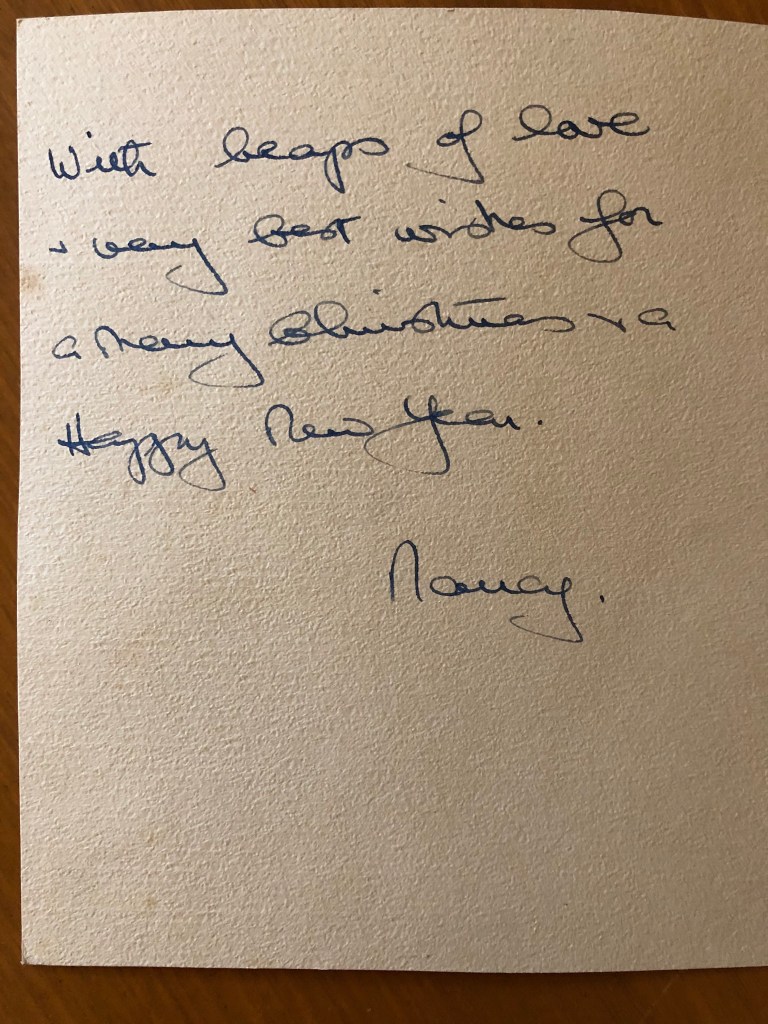 With heaps of love
+ very best wishes for
a Merry Christmas + a
Happy New Year.
Nancy.